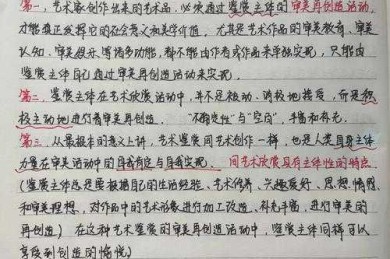 第一，艺术家创作出来的艺术品，必须通过鉴赏主体的审美再创造活动，
才能真正发挥它的社会意义和美学价值。尤其是艺术作品的审美教育、审美
认知、审美娱乐等诸多功能，都不能由作者或作品来单独实现，只能由
鉴赏主体自己通过审美再创造活动来实现。
第二，鉴赏主体在艺术欣赏活动中，并不是被动、消极地接受，而是积
极主动地进行着审美再创造。“不确定性”与“空白”，丰富和补充。
第三，从最根本的意义上讲，艺术鉴赏同艺术创作一样，也是人类自身主体
力量在审美活动中的自我肯定与自我实现。间艺术欣赏具有主体性的特点
(鉴赏主体总是要根据自己的生活经验、艺术修养、兴趣爱好、思想、情感
和审美理想，对作品中的艺术形象进行加工改造、补充丰富，进行审美的
再创造) 在这种艺术鉴赏的审美再创造活动中，鉴赏主体同样可以
享受到创造的愉悦)